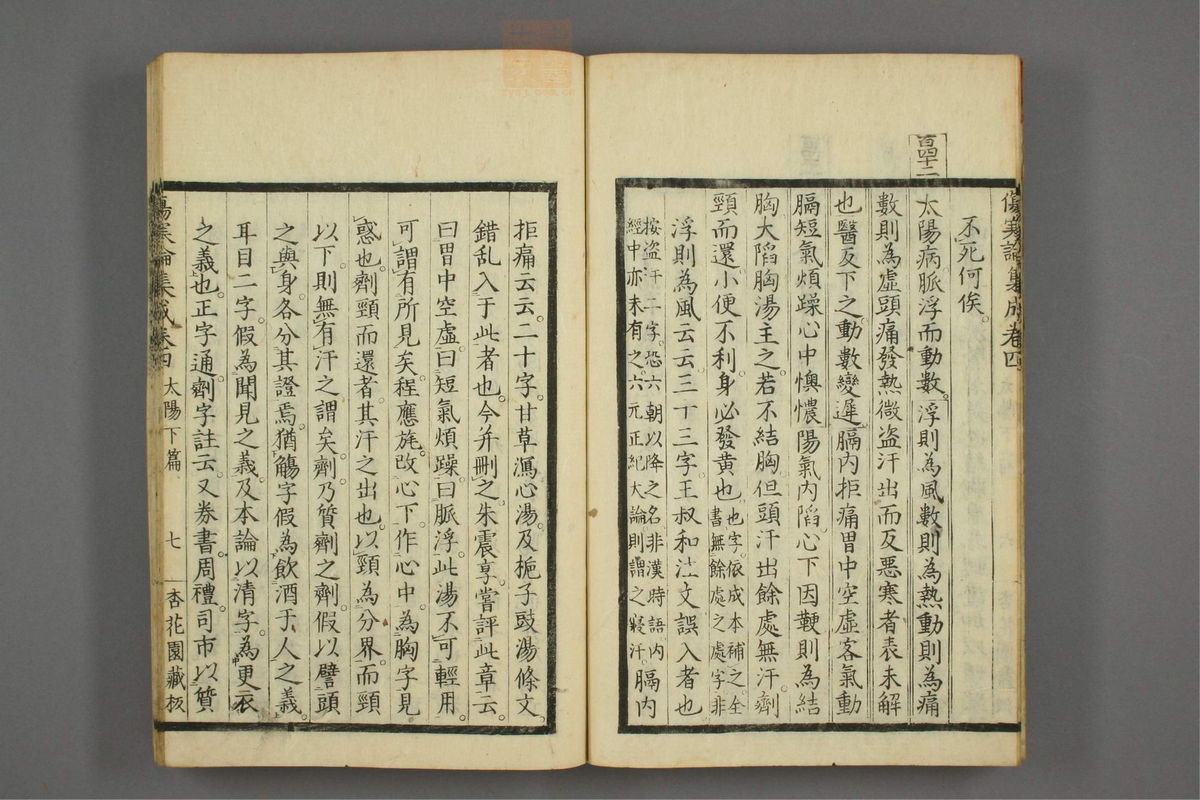 傷寒論集成卷四
不死何俟。
百四十二
太陽病。脈浮而動數。浮則為風。數則為熱。動則為痛
數則為虛。頭痛發熱。微盗汗出。而反惡寒者。表未解
也。醫反下之。動數變遲。膈内拒痛。胃中空虛。客氣動
膈。短氣煩躁。心中懊憹。陽氣内陷。心下因鞕。則為結
胸。大陷胸湯主之。若不結胸。但頭汗出。餘處無汗。劑
頸而還。小便不利。身必發黄也。
也字。依成本補之。全
書無餘處之處字非
浮則為風云云三十三字。王叔和注文誤入者也
按盗汗二字。恐六朝以降之名。非漢時語。内
經中亦未有之。六元正紀大論。則謂之寢汗。
膈内
拒痛云云。二十字。甘草瀉心湯。及梔子豉湯條文。
錯乱入于此者也。今并刪之。朱震亨嘗評此章云。
曰胃中空虛。曰短氣煩躁。曰脈浮。此湯不可輕用。
可謂有所見矣。程應旄。改心下。作心中。為胸字見
惑也。劑頸而還者。其汗之出也。以頸為分界。而頸
以下。則無有汗之謂矣。劑。乃質劑之劑。假以譬頭
之與身。各分其證焉。猶觴字假為飲酒于人之義。
耳目二字。假為聞見之義。及本論以清字。為更衣
之義也。正字通。劑字註云。又券書。周禮。司市以質
傷寒論集成卷四
太陽下篇
七
杏花園藏板